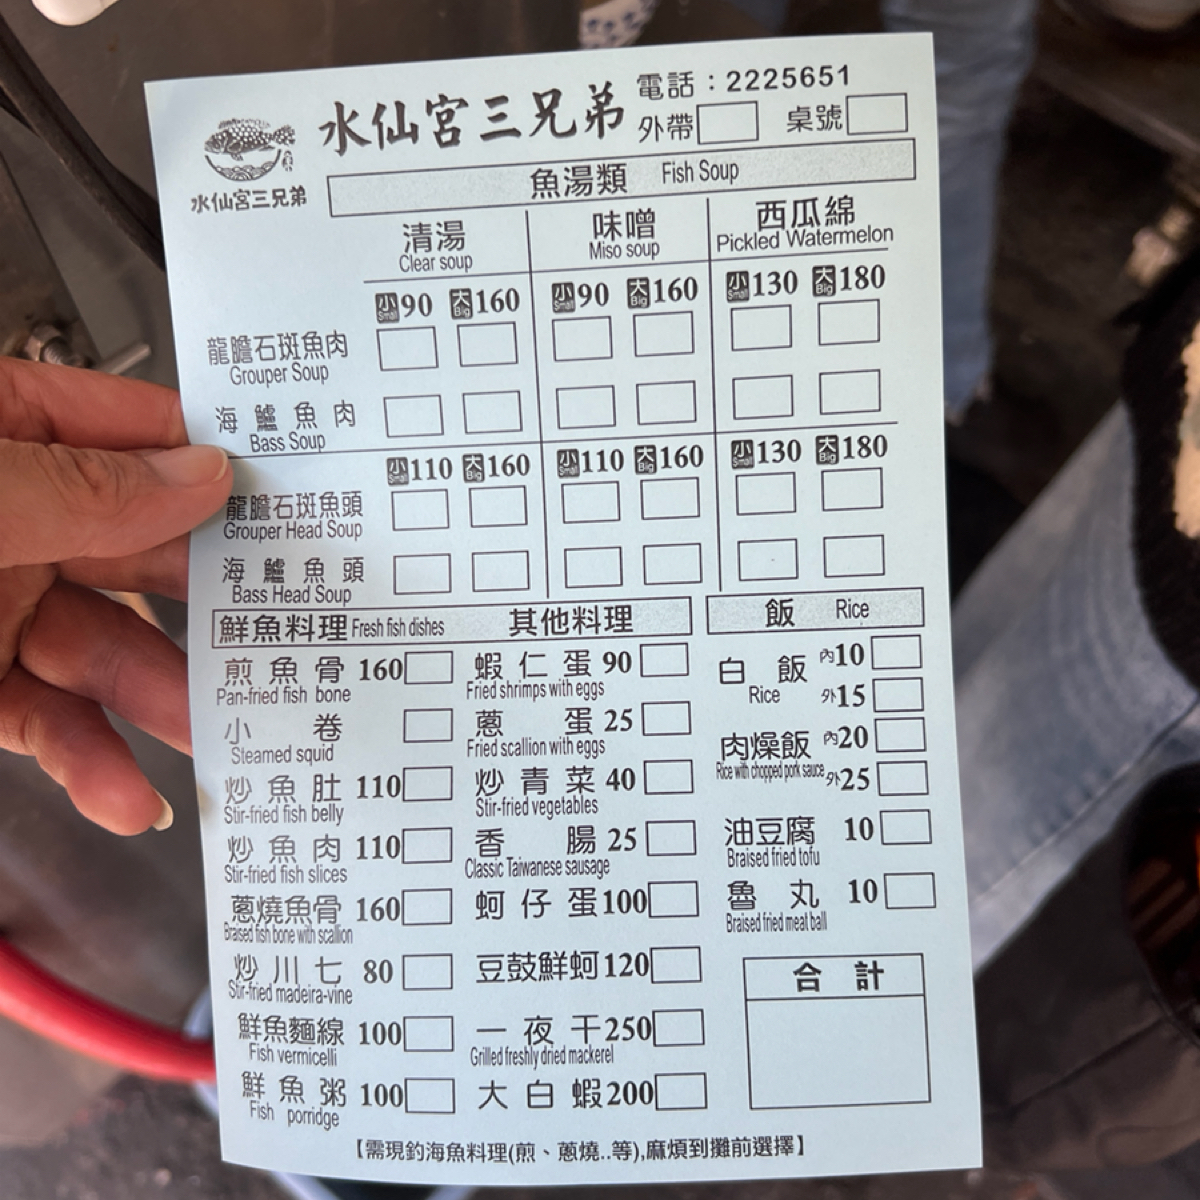 水仙宮三兄弟
水仙宮三兄弟
電話：2225651
外帶 桌號
魚湯類 Fish Soup
清湯 味噌 西瓜綿
Clear soup Miso soup Pickled Watermelon
小 Small 90 大 Big 160 小 Small 90 大 Big 160 小 Small 130 大 Big 180
龍膽石斑魚肉
Grouper Soup
海鱸魚肉
Bass Soup
小 Small 110 大 Big 160 小 Small 110 大 Big 160 小 Small 130 大 Big 180
龍膽石斑魚頭
Grouper Head Soup
海鱸魚頭
Bass Head Soup
鮮魚料理 Fresh fish dishes 其他料理
煎魚骨 160
Pan-fried fish bone
小卷
Steamed squid
炒魚肚 110
Stir-fried fish belly
炒魚肉 110
Stir-fried fish slices
蔥燒魚骨 160
Braised fish bone with scallion
炒川七 80
Stir-fried madeira-vine
鮮魚麵線 100
Fish vermicelli
鮮魚粥 100
Fish porridge
蝦仁蛋 90
Fried shrimps with eggs
蔥蛋 25
Fried scallion with eggs
炒青菜 40
Stir-fried vegetables
香腸 25
Classic Taiwanese sausage
蚵仔蛋 100
豆鼓鮮蚵 120
一夜干 250
Grilled freshly dried mackerel
大白蝦 200
飯 Rice
白飯 內10
Rice 外15
肉燥飯 內20
Rice with chopped pork sauce 外25
油豆腐 10
Braised fried tofu
魯丸 10
Braised fried meat ball
合計
【需現釣海魚料理(煎、蔥燒..等),麻煩到攤前選擇】